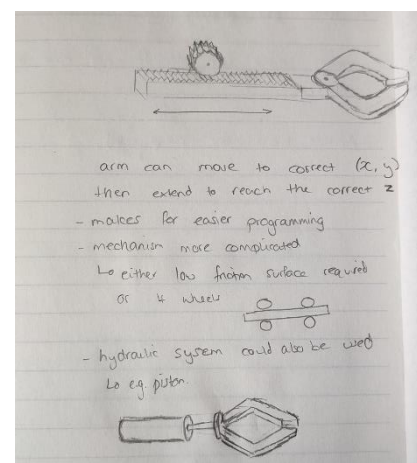 arm can move to correct (x, y)
then extend to reach the correct z
- makes for easier programming
- mechanism more complicated
↳ either low friction surface required
or 4 wheels
- hydraulic system could also be used
↳ e.g. piston